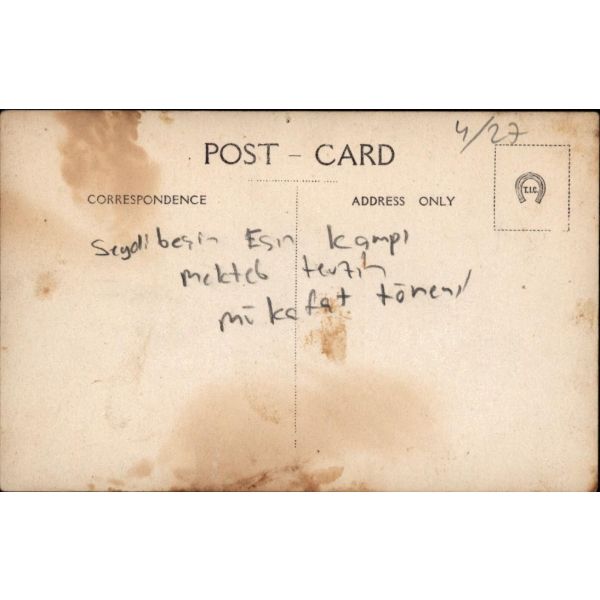 4/27
POST - CARD
CORRESPONDENCE ADDRESS ONLY
T.I.C.
Seydibeşir Esir kampı
mekteb tevzih
mükafat töreni